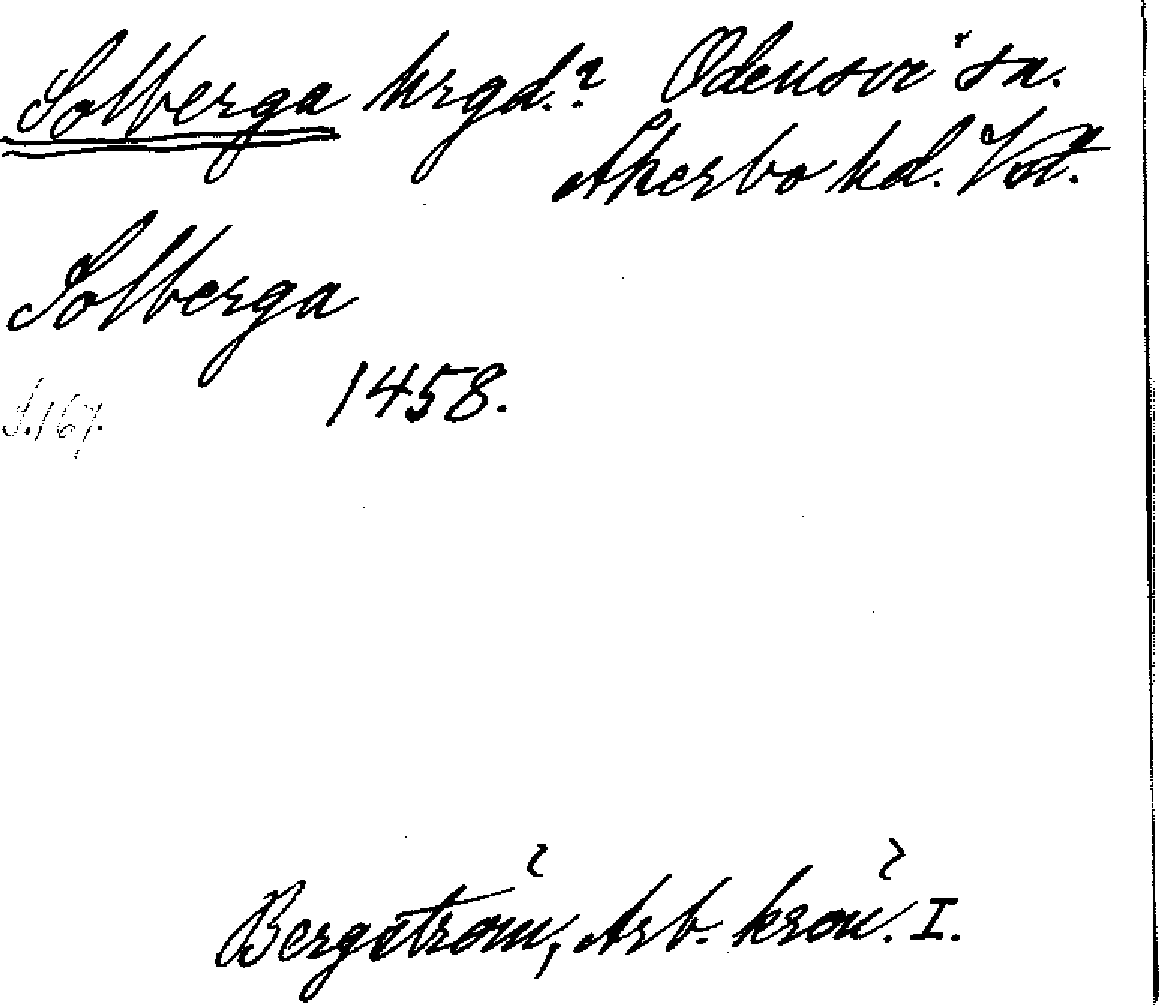 Solberga hrgd.? Odensvi sn.
Åkerbo hd. Vstl.
Solberga
1458.
S. 167.
Bergström, Arb. krön. I.